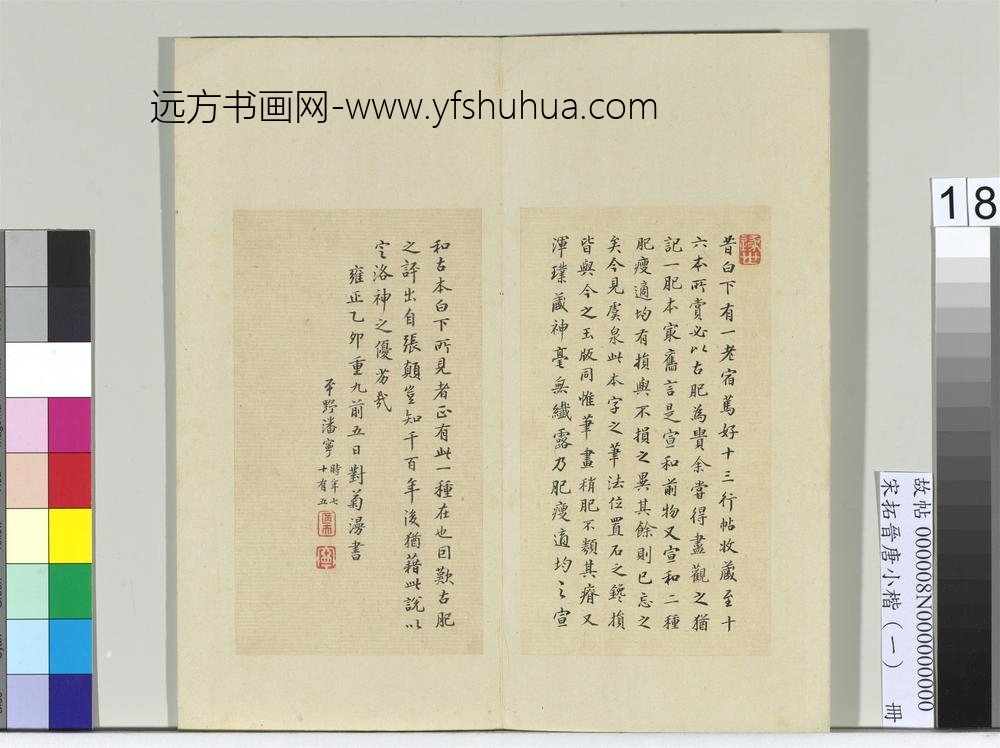 远方书画网-www.yfshuhua.com
昔白下有一老宿篤好十三行帖收藏至十
六本所賞必以古肥為貴余嘗得盡觀之猶
記一肥本家舊言是宣和前物又宣和二種
肥瘦適均有損與不損之異其餘則已忘之
矣今見虞泉此本字之筆法位置石之鑱損
皆與今之玉版同惟筆畫稍肥不類其瘠又
渾璞藏神毫無纖露乃肥瘦適均之宣
和古本白下所見者正有此一種在也因歎古肥
之評出自張顛豈知千百年後猶藉此說以
定洛神之優劣哉
雍正乙卯重九前五日對菊漫書
平野潘寧
時年七
十有五
18
故帖000008N000000000
宋拓晉唐小楷(一) 冊